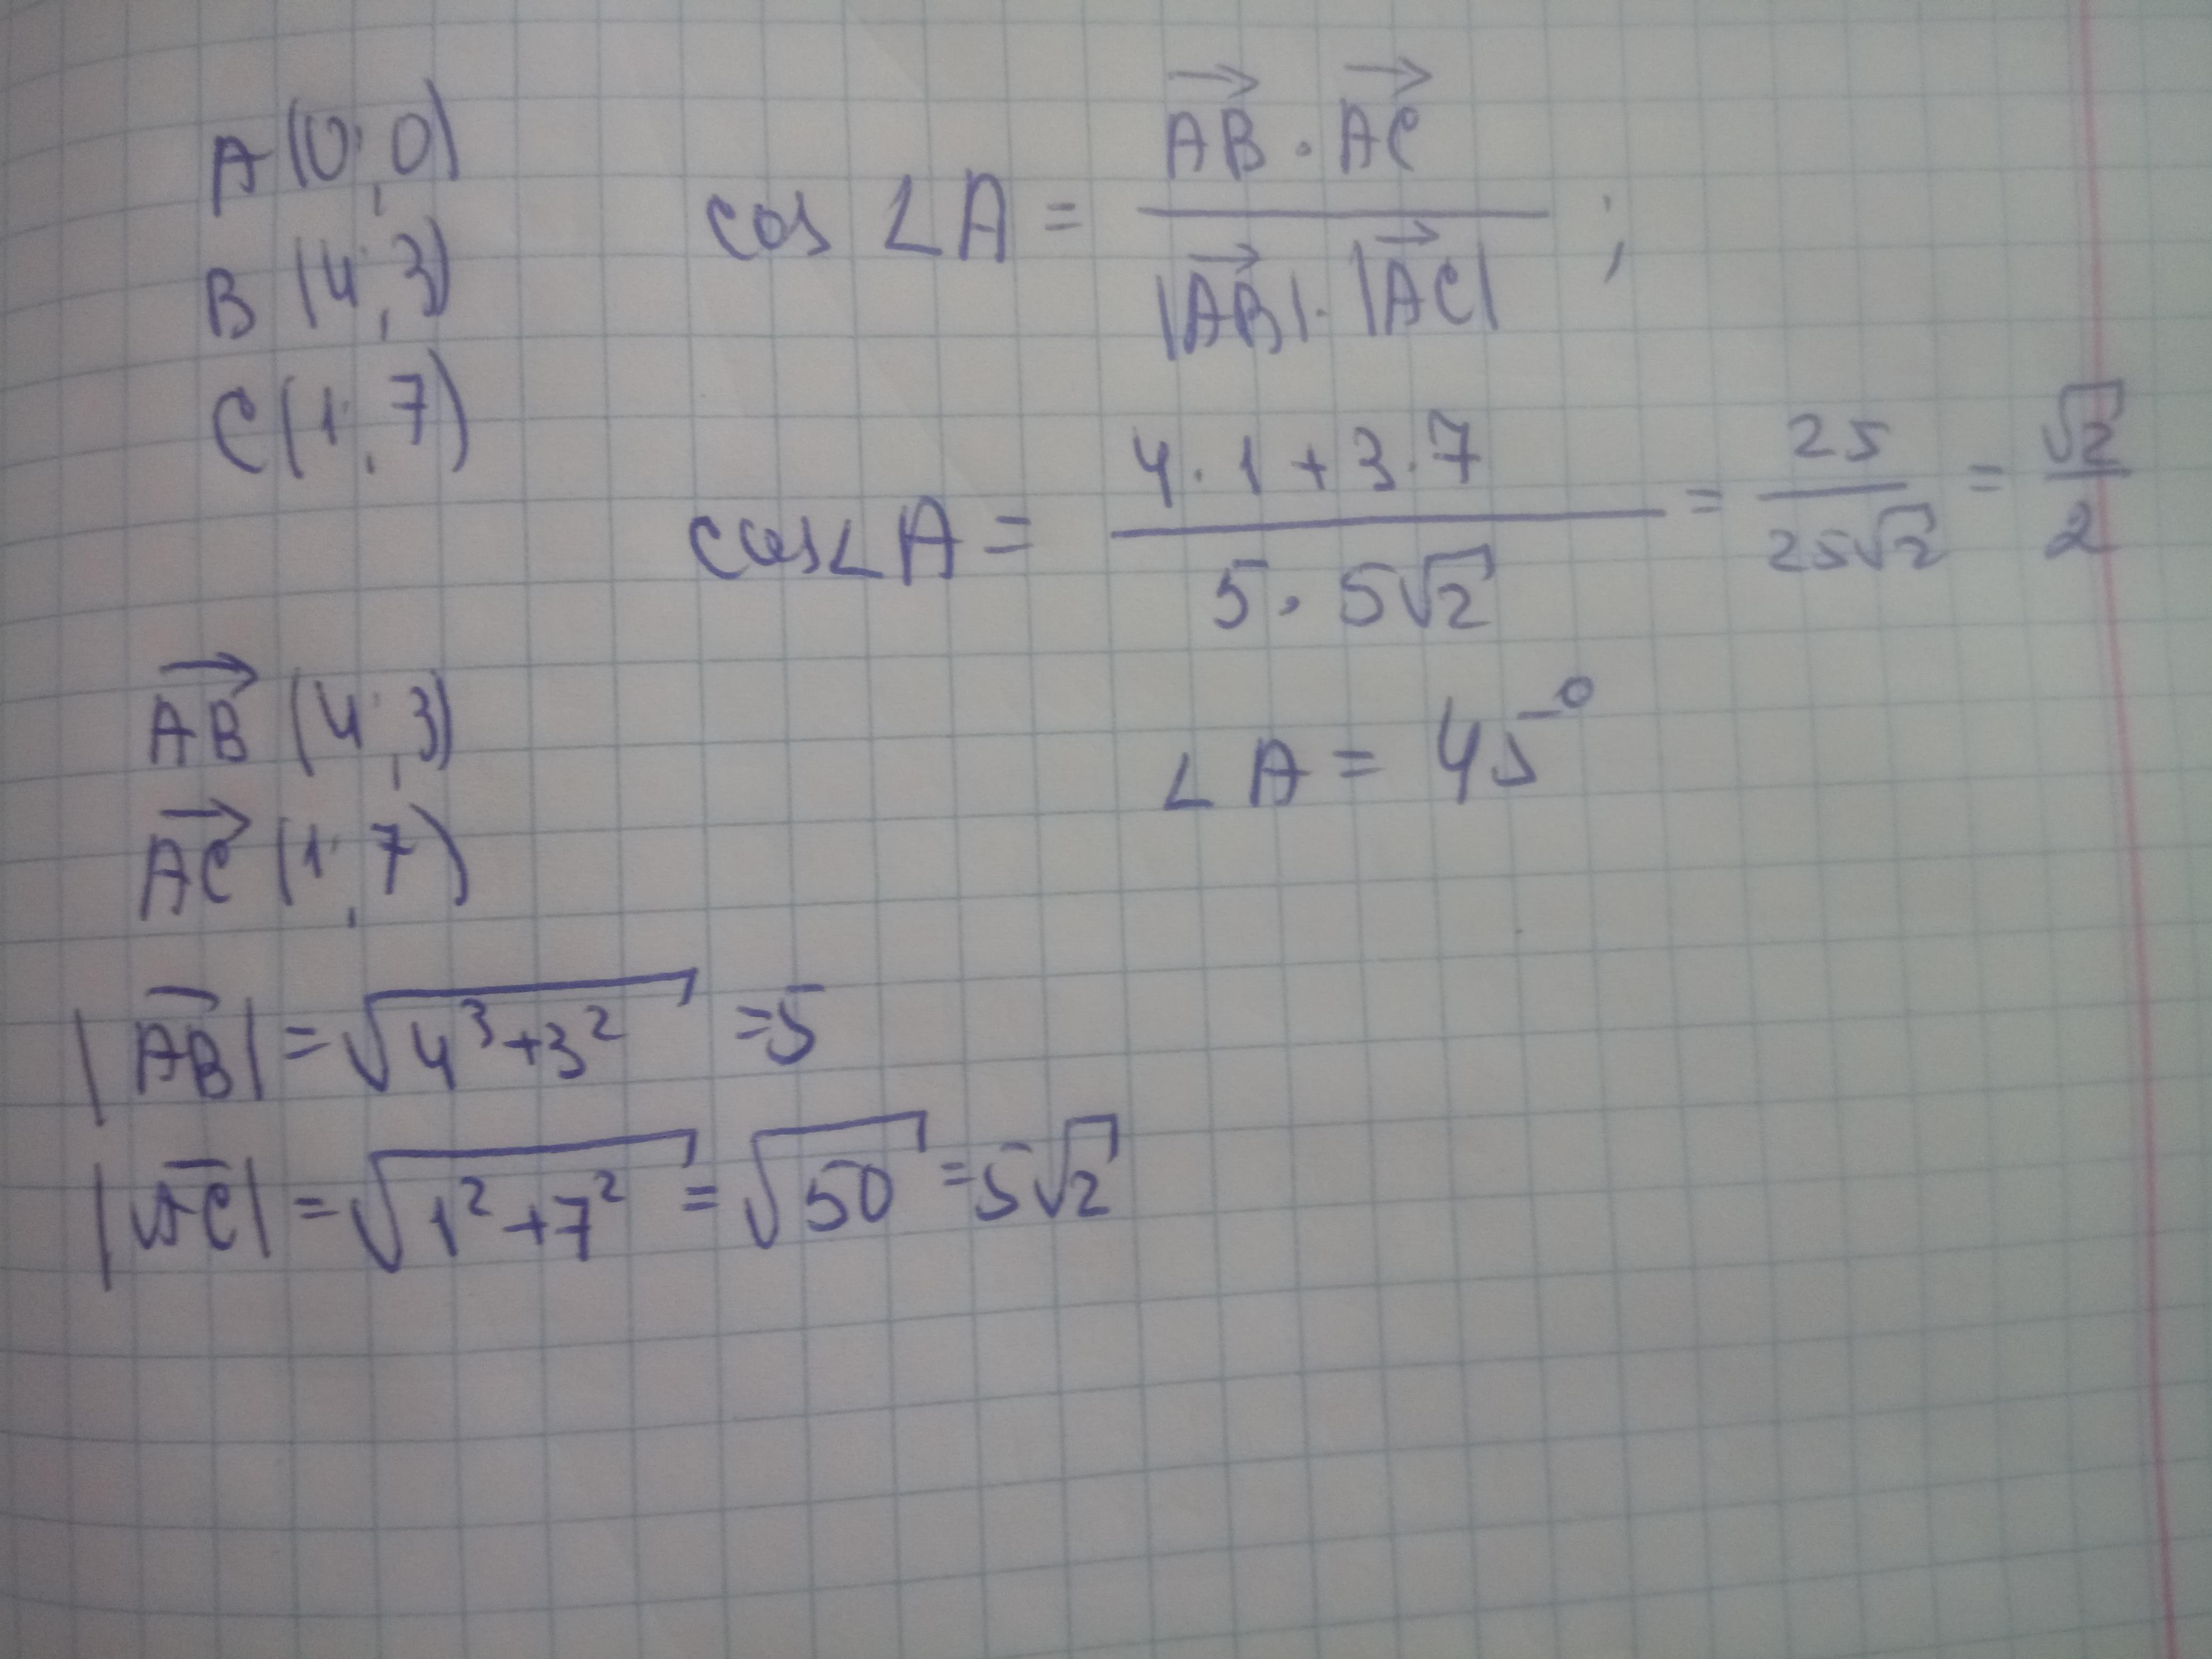 A(0;0)
B(4;3)
C(1;7)
cos ∠A = (AB⃗ · AC⃗) / (|AB⃗| · |AC⃗|) ;
cos∠A = (4·1+3·7) / (5·5√2) = 25 / (25√2) = √2 / 2
∠A = 45°
AB⃗ (4;3)
AC⃗ (1;7)
|AB⃗| = √(4³+3²) = 5
|AC⃗| = √(1²+7²) = √50 = 5√2